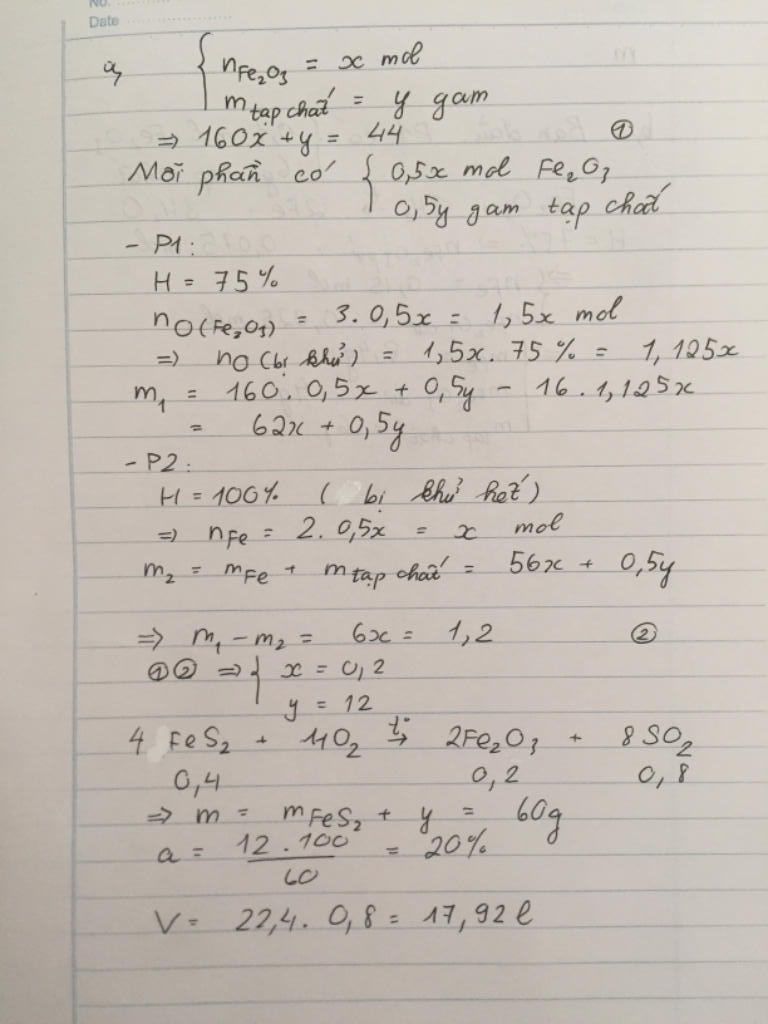 No.
Date
a, { nFe₂O₃ = x mol
m tạp chất = y gam
⇒ 160x + y = 44 ①
Mỗi phần có { 0,5x mol Fe₂O₃
0,5y gam tạp chất
- P1:
H = 75%
nO(Fe₂O₃) = 3. 0,5x = 1,5x mol
⇒ nO (bị khử) = 1,5x. 75% = 1,125x
m₁ = 160. 0,5x + 0,5y - 16. 1,125x
= 62x + 0,5y
- P2:
H = 100% ( bị khử hết)
⇒ nFe = 2. 0,5x = x mol
m₂ = mFe + m tạp chất = 56x + 0,5y
⇒ m₁ - m₂ = 6x = 1,2 ②
①② ⇒ { x = 0,2
y = 12
4 FeS₂ + 11O₂ t°→ 2Fe₂O₃ + 8SO₂
0,4 0,2 0,8
⇒ m = mFeS₂ + y = 60g
a = 12 . 100 / 60 = 20%
V = 22,4. 0,8 = 17,92 l